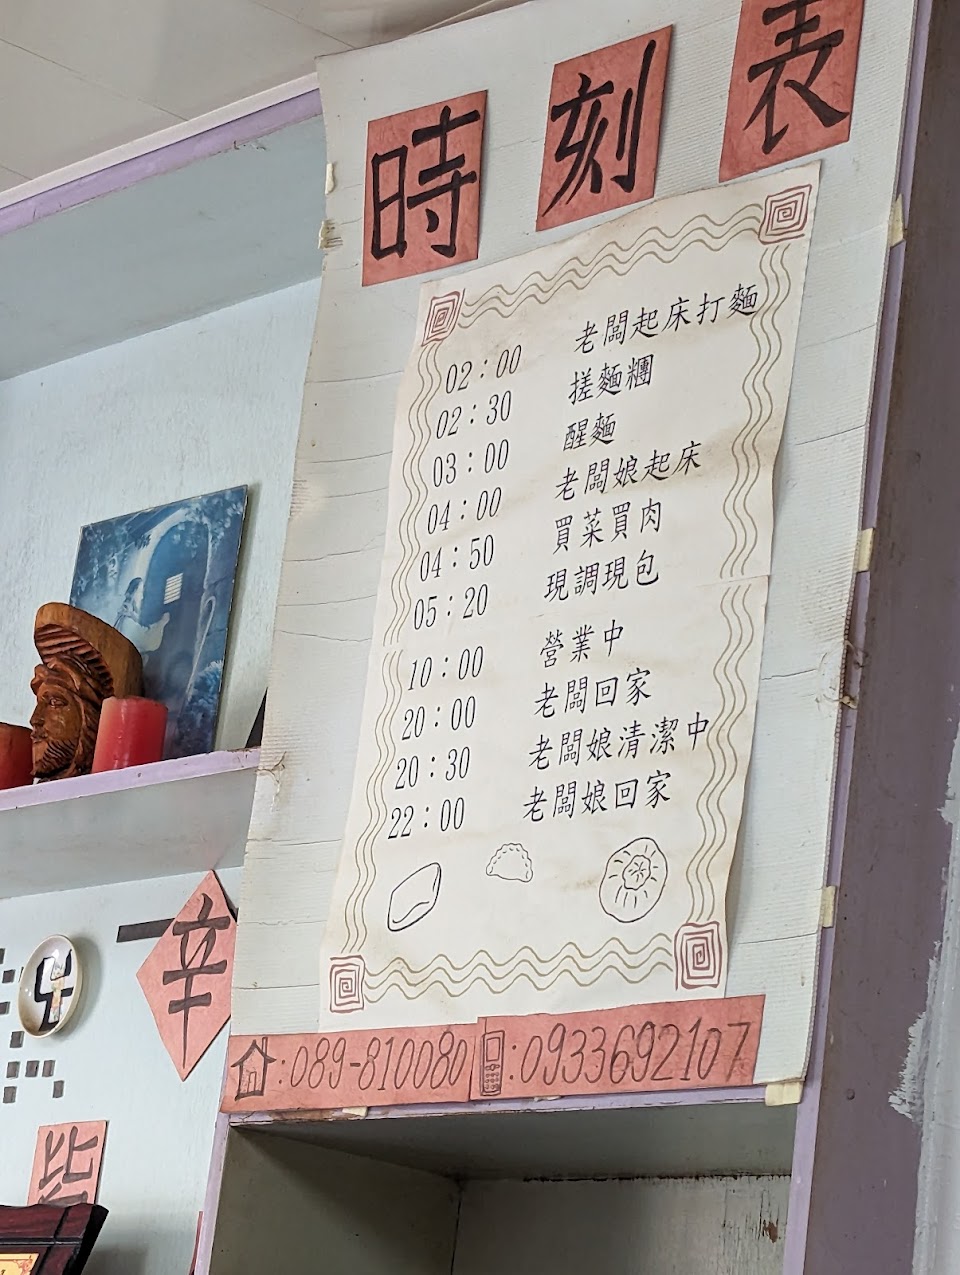 時刻表
02:00 老闆起床打麵
02:30 搓麵糰
03:00 醒麵
04:00 老闆娘起床
04:50 買菜買肉
05:20 現調現包
10:00 營業中
20:00 老闆回家
20:30 老闆娘清潔中
22:00 老闆娘回家
:089-810080 :0933692107
辛
皆